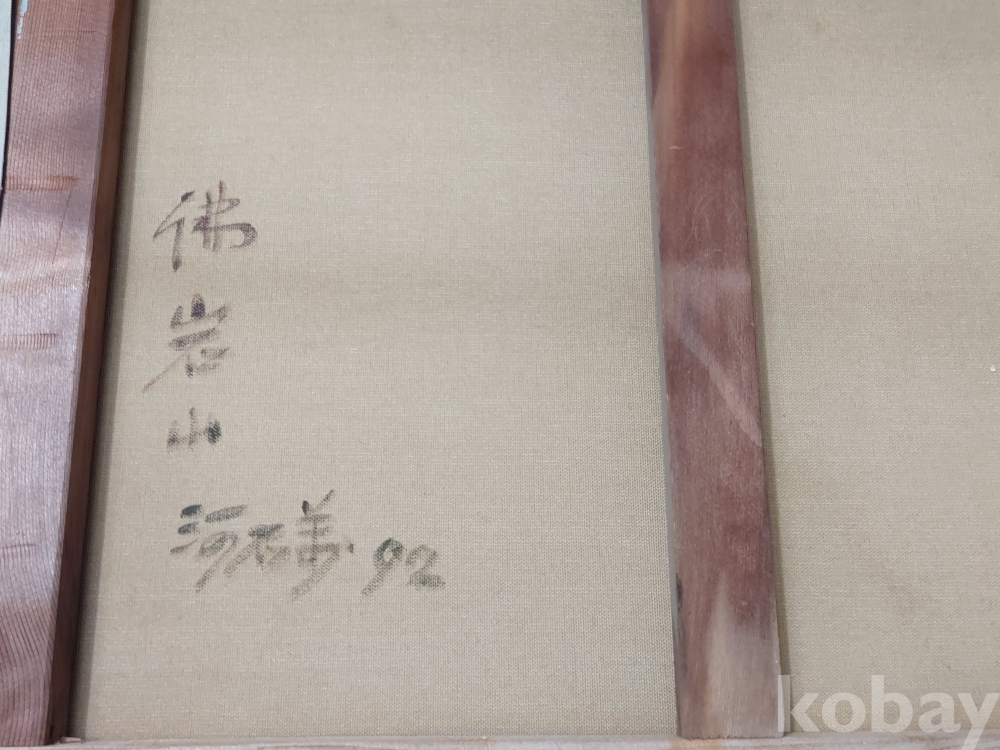 佛岩山
河石 92
kobay